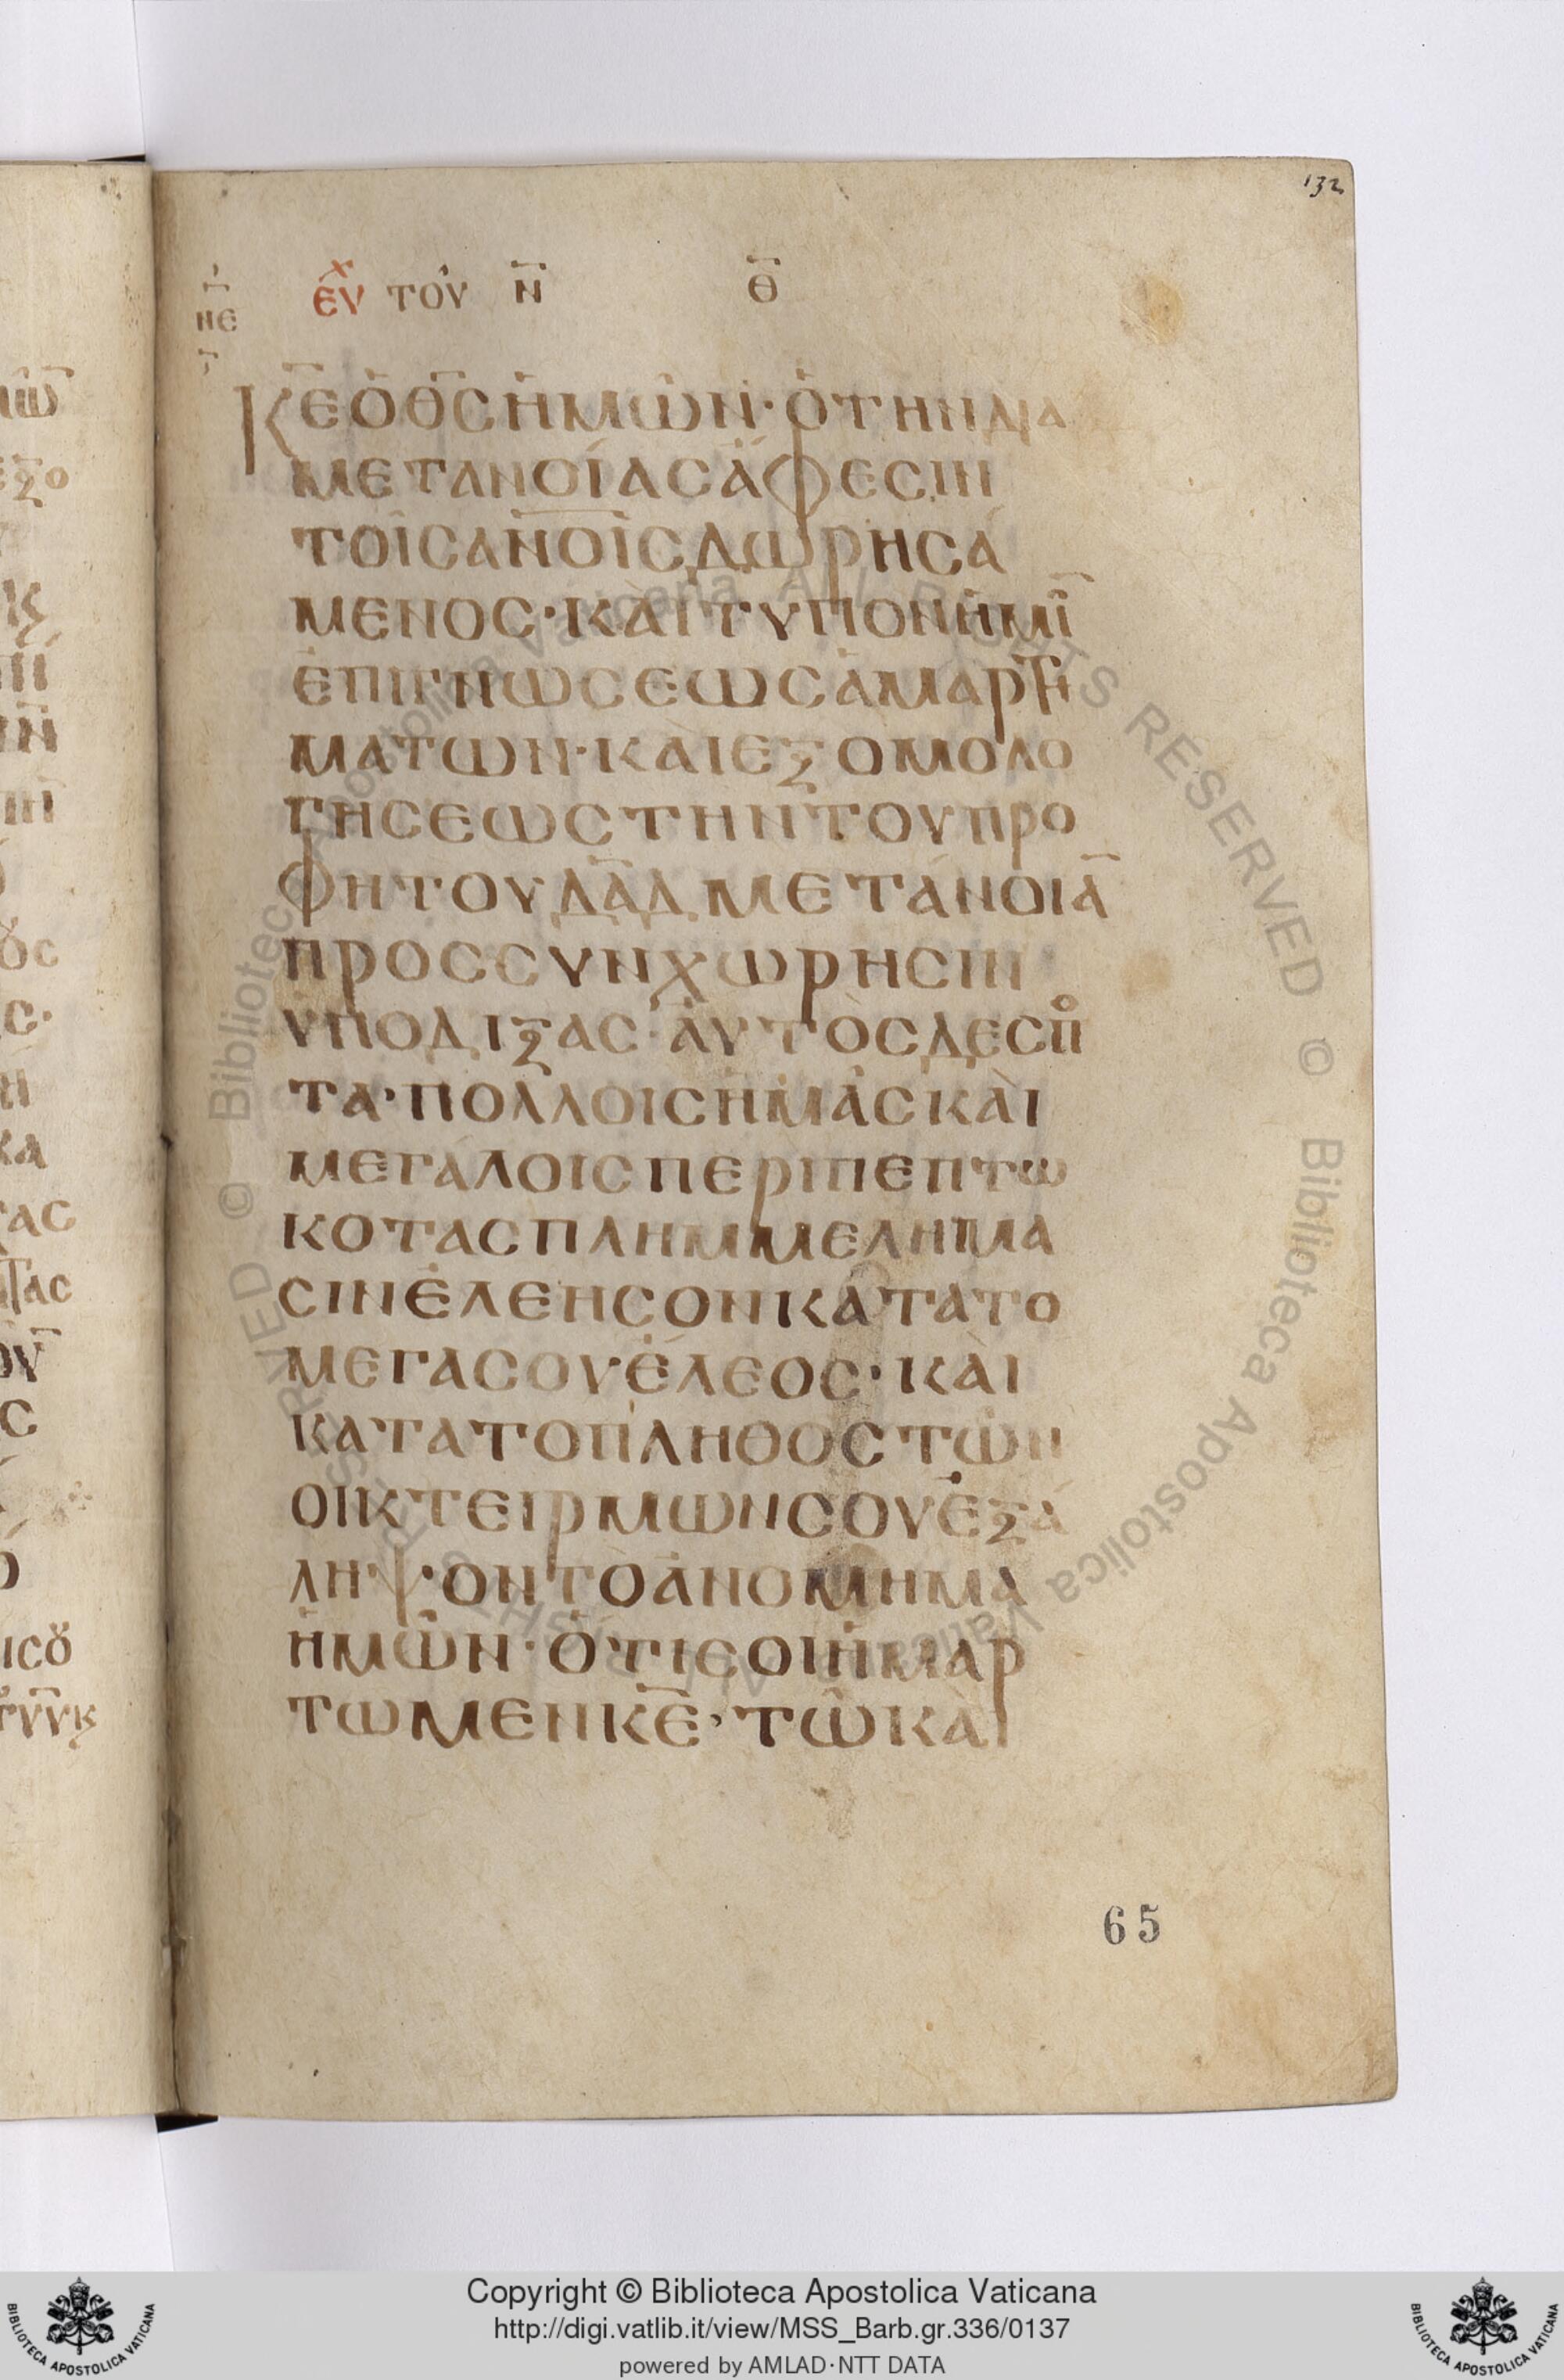 132
ΕΥΧ ΤΟΥ Ν̅ Θ̅
ΠΕ
Κ̅Ε̅ Ὁ Θ̅Σ̅ ἩΜΩ͂Ν· Ὁ ΤΗΝ ΔΙΑ
ΜΕΤΑΝΟΊΑΣ ἌΦΕΣΙΝ
ΤΟΙΣ ΑΝ̅Ο̅Ι̅Σ ΔΩΡΗΣΆ
ΜΕΝΟΣ· ΚΑῚ ΤΥΠΟΝ ἩΜΙ̅
ἘΠΙΓΝΩΣΕΩΣ ἉΜΑΡΤΗ
ΜΑΤΩΝ· ΚΑῚ ΕΞΟΜΟΛΟ
ΓΗΣΕΩΣ ΤΗΝ ΤΟΥ ΠΡΟ
ΦΗΤΟΥ Δ̅Α̅Δ̅ ΜΕΤΆΝΟΙΑ̅
ΠΡΟΣ ΣΥΝΧΩΡΗΣΙΝ
ΥΠΟΔΙΞΑΣ· ἈΥΤῸΣ ΔΕΣΠΟ
ΤΑ· ΠΟΛΛΟΙΣ ἩΜΑ͂Σ ΚΑῚ
ΜΕΓΆΛΟΙΣ ΠΕΡΙΠΕΠΤΩ
ΚΟΤΑΣ ΠΛΗΜΜΕΛΗΜΑ
ΣΙΝ ἘΛΕΗΣΟΝ ΚΑΤΑ ΤΟ
ΜΕΓΑ ΣΟΥ ἜΛΕΟΣ· ΚΑῚ
ΚΑΤΑ ΤΟ ΠΛΗΘΟΣ ΤΩ͂Ν
ΟΙΚΤΕΙΡΜΩΝ ΣΟΥ ἘΞΆ
ΛΗ·Ψ·ΟΝ ΤῸ ἈΝΟΜΗΜΑ
ἩΜΩ͂Ν· ὍΤΙ ΣΟΙ ἩΜΑΡ
ΤΩΜΕΝ Κ̅Ε̅· ΤΩ͂ ΚΑῚ
65
Copyright © Biblioteca Apostolica Vaticana
http://digi.vatlib.it/view/MSS_Barb.gr.336/0137
powered by AMLAD·NTT DATA
BIBLIOTECA APOSTOLICA VATICANA
BIBLIOTECA APOSTOLICA VATICANA